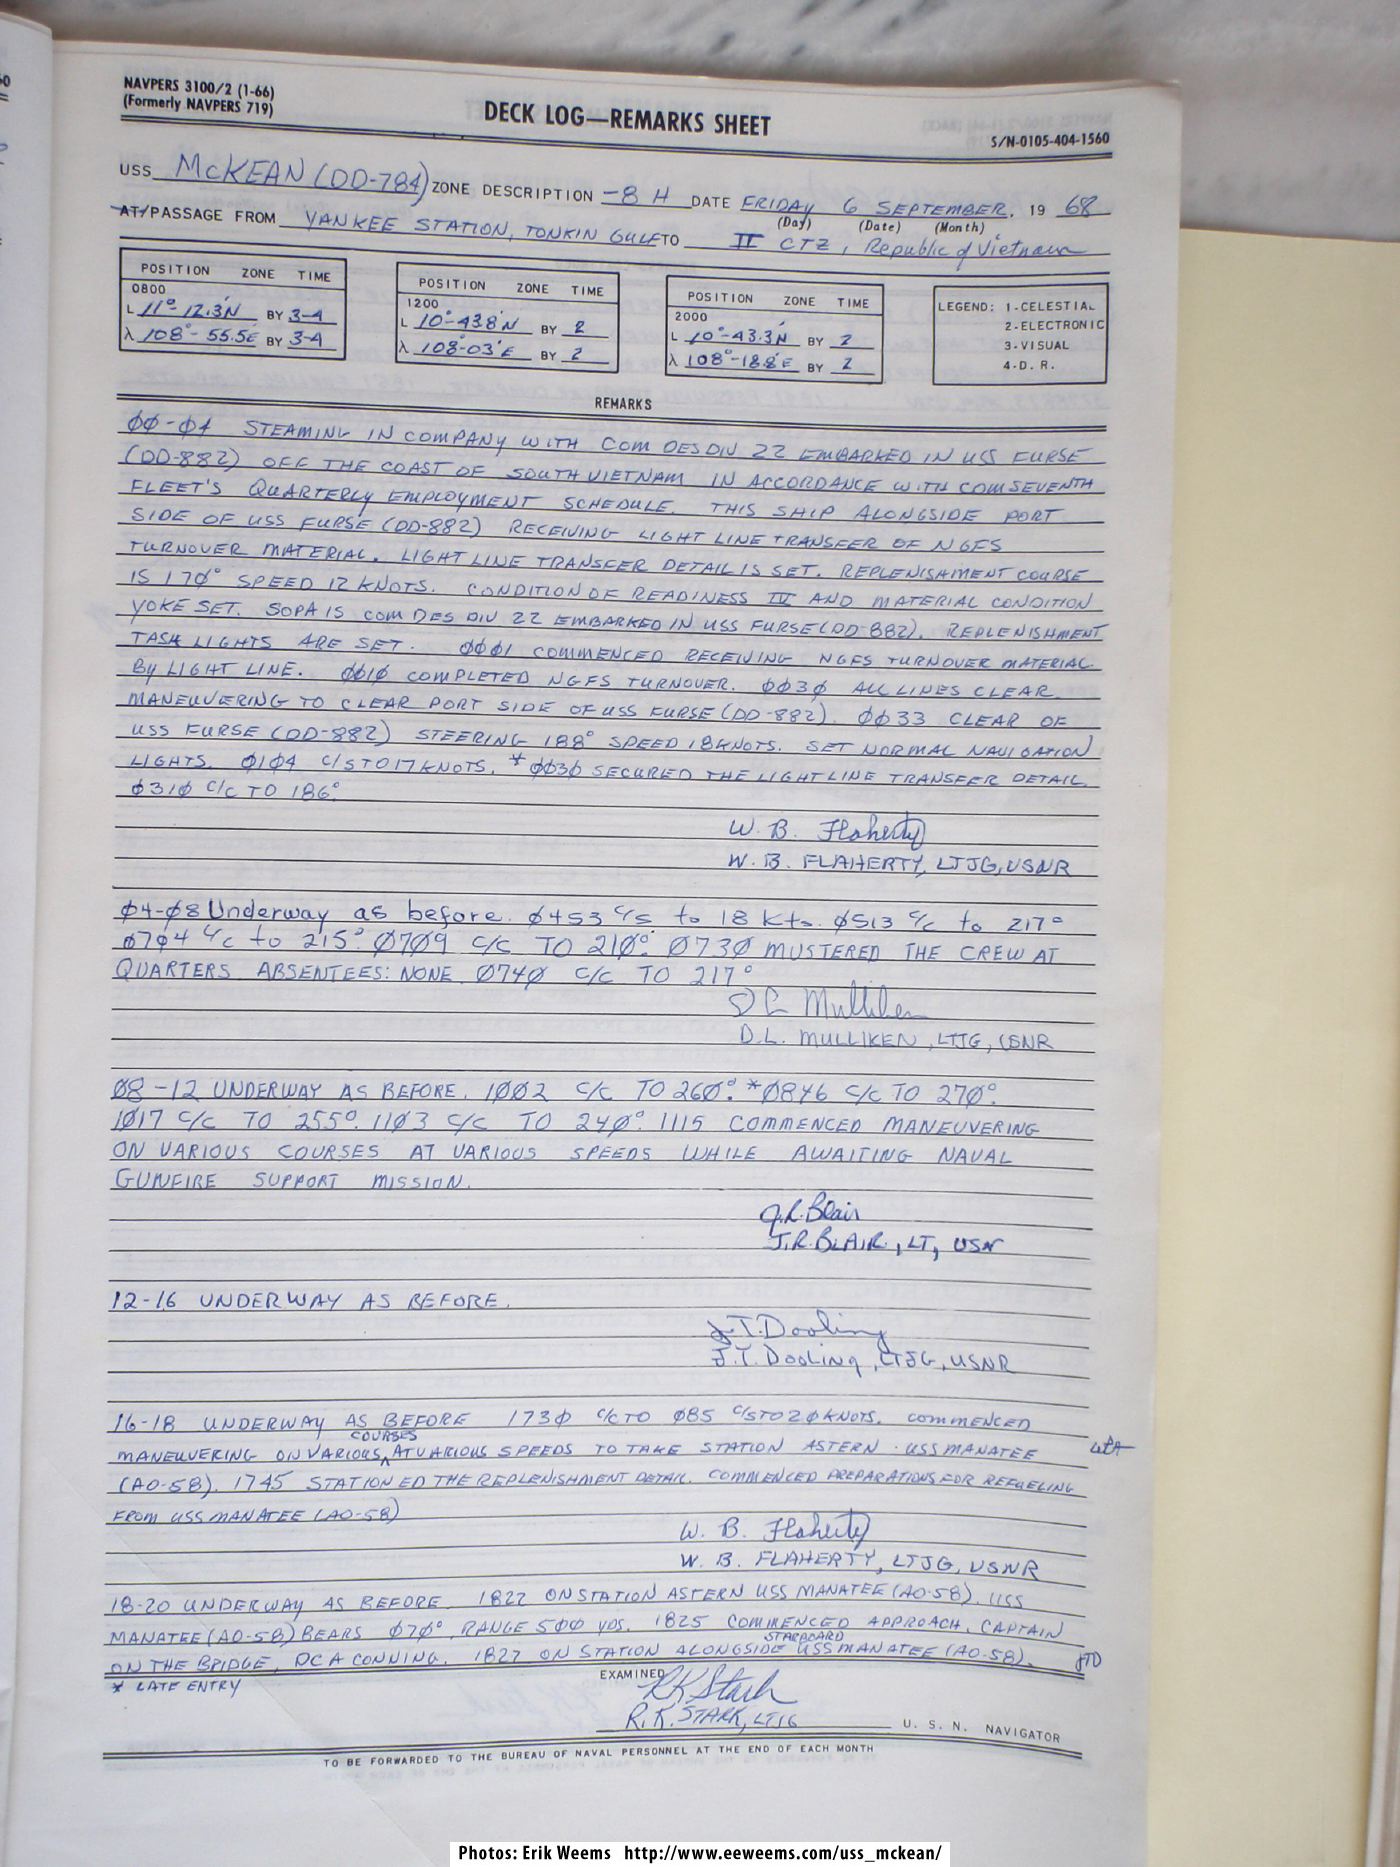 NAVPERS 3100/2 (1-66)
(Formerly NAVPERS 719)
DECK LOG—REMARKS SHEET
S/N-0105-404-1560
USS McKEAN (DD-784) ZONE DESCRIPTION -8 H DATE FRIDAY 6 SEPTEMBER, 19 68
(Day) (Date) (Month)
AT/PASSAGE FROM YANKEE STATION, TONKIN GULF TO II CTZ, Republic of Vietnam
POSITION ZONE TIME
0800
L 11°-12.3'N BY 3-4
λ 108°-55.5'E BY 3-4
POSITION ZONE TIME
1200
L 10°-43.8'N BY 2
λ 108°-03'E BY 2
POSITION ZONE TIME
2000
L 10°-43.3'N BY 2
λ 108°-18.8'E BY 2
LEGEND: 1-CELESTIAL
2-ELECTRONIC
3-VISUAL
4-D. R.
REMARKS
00-04 STEAMING IN COMPANY WITH COM DES DIV 22 EMBARKED IN USS FURSE
(DD-882) OFF THE COAST OF SOUTH VIETNAM IN ACCORDANCE WITH COMSEVENTH
FLEET'S QUARTERLY EMPLOYMENT SCHEDULE. THIS SHIP ALONGSIDE PORT
SIDE OF USS FURSE (DD-882) RECEIVING LIGHT LINE TRANSFER OF NGFS
TURNOVER MATERIAL. LIGHT LINE TRANSFER DETAIL IS SET. REPLENISHMENT COURSE
IS 170° SPEED 12 KNOTS. CONDITION OF READINESS IV AND MATERIAL CONDITION
YOKE SET. SOPA IS COM DES DIV 22 EMBARKED IN USS FURSE (DD-882). REPLENISHMENT
TASK LIGHTS ARE SET. 0001 COMMENCED RECEIVING NGFS TURNOVER MATERIAL
BY LIGHT LINE. 0010 COMPLETED NGFS TURNOVER. 0030 ALL LINES CLEAR
MANEUVERING TO CLEAR PORT SIDE OF USS FURSE (DD-882). 0033 CLEAR OF
USS FURSE (DD-882) STEERING 188° SPEED 18 KNOTS. SET NORMAL NAVIGATION
LIGHTS. 0104 C/S TO 17 KNOTS. *0030 SECURED THE LIGHT LINE TRANSFER DETAIL.
0310 C/C TO 186°
W. B. Flaherty
W. B. FLAHERTY, LTJG, USNR
04-08 Underway as before. 0453 C/S to 18 kts. 0513 C/C to 217°
0704 C/C to 215°. 0709 C/C TO 210°. 0730 MUSTERED THE CREW AT
QUARTERS ABSENTEES: NONE. 0740 C/C TO 217°
D L Mulliken
D.L. MULLIKEN, LTJG, USNR
08-12 UNDERWAY AS BEFORE. 1002 C/C TO 260°. *0846 C/C TO 270°.
1017 C/C TO 255°. 1103 C/C TO 240°. 1115 COMMENCED MANEUVERING
ON VARIOUS COURSES AT VARIOUS SPEEDS WHILE AWAITING NAVAL
GUNFIRE SUPPORT MISSION.
J.R. Blair
J.R. BLAIR, LT, USN
12-16 UNDERWAY AS BEFORE.
J.T. Dooling
J.T. Dooling, LTJG, USNR
16-18 UNDERWAY AS BEFORE 1730 C/C TO 085 C/S TO 20 KNOTS. COMMENCED
MANEUVERING ON VARIOUS COURSES AT VARIOUS SPEEDS TO TAKE STATION ASTERN USS MANATEE
(AO-58). 1745 STATIONED THE REPLENISHMENT DETAIL. COMMENCED PREPARATIONS FOR REFUELING
FROM USS MANATEE (AO-58)
W. B. Flaherty
W. B. FLAHERTY, LTJG, USNR
18-20 UNDERWAY AS BEFORE. 1822 ON STATION ASTERN USS MANATEE (AO-58). USS
MANATEE (AO-58) BEARS 070°, RANGE 500 YDS. 1825 COMMENCED APPROACH, CAPTAIN
ON THE BRIDGE, DCA CONNING. 1827 ON STATION ALONGSIDE STARBOARD USS MANATEE (AO-58). JTD
* LATE ENTRY
EXAMINED
RK Stark
R. K. STARK, LTJG U. S. N. NAVIGATOR
TO BE FORWARDED TO THE BUREAU OF NAVAL PERSONNEL AT THE END OF EACH MONTH
Photos: Erik Weems http://www.eeweems.com/uss_mckean/